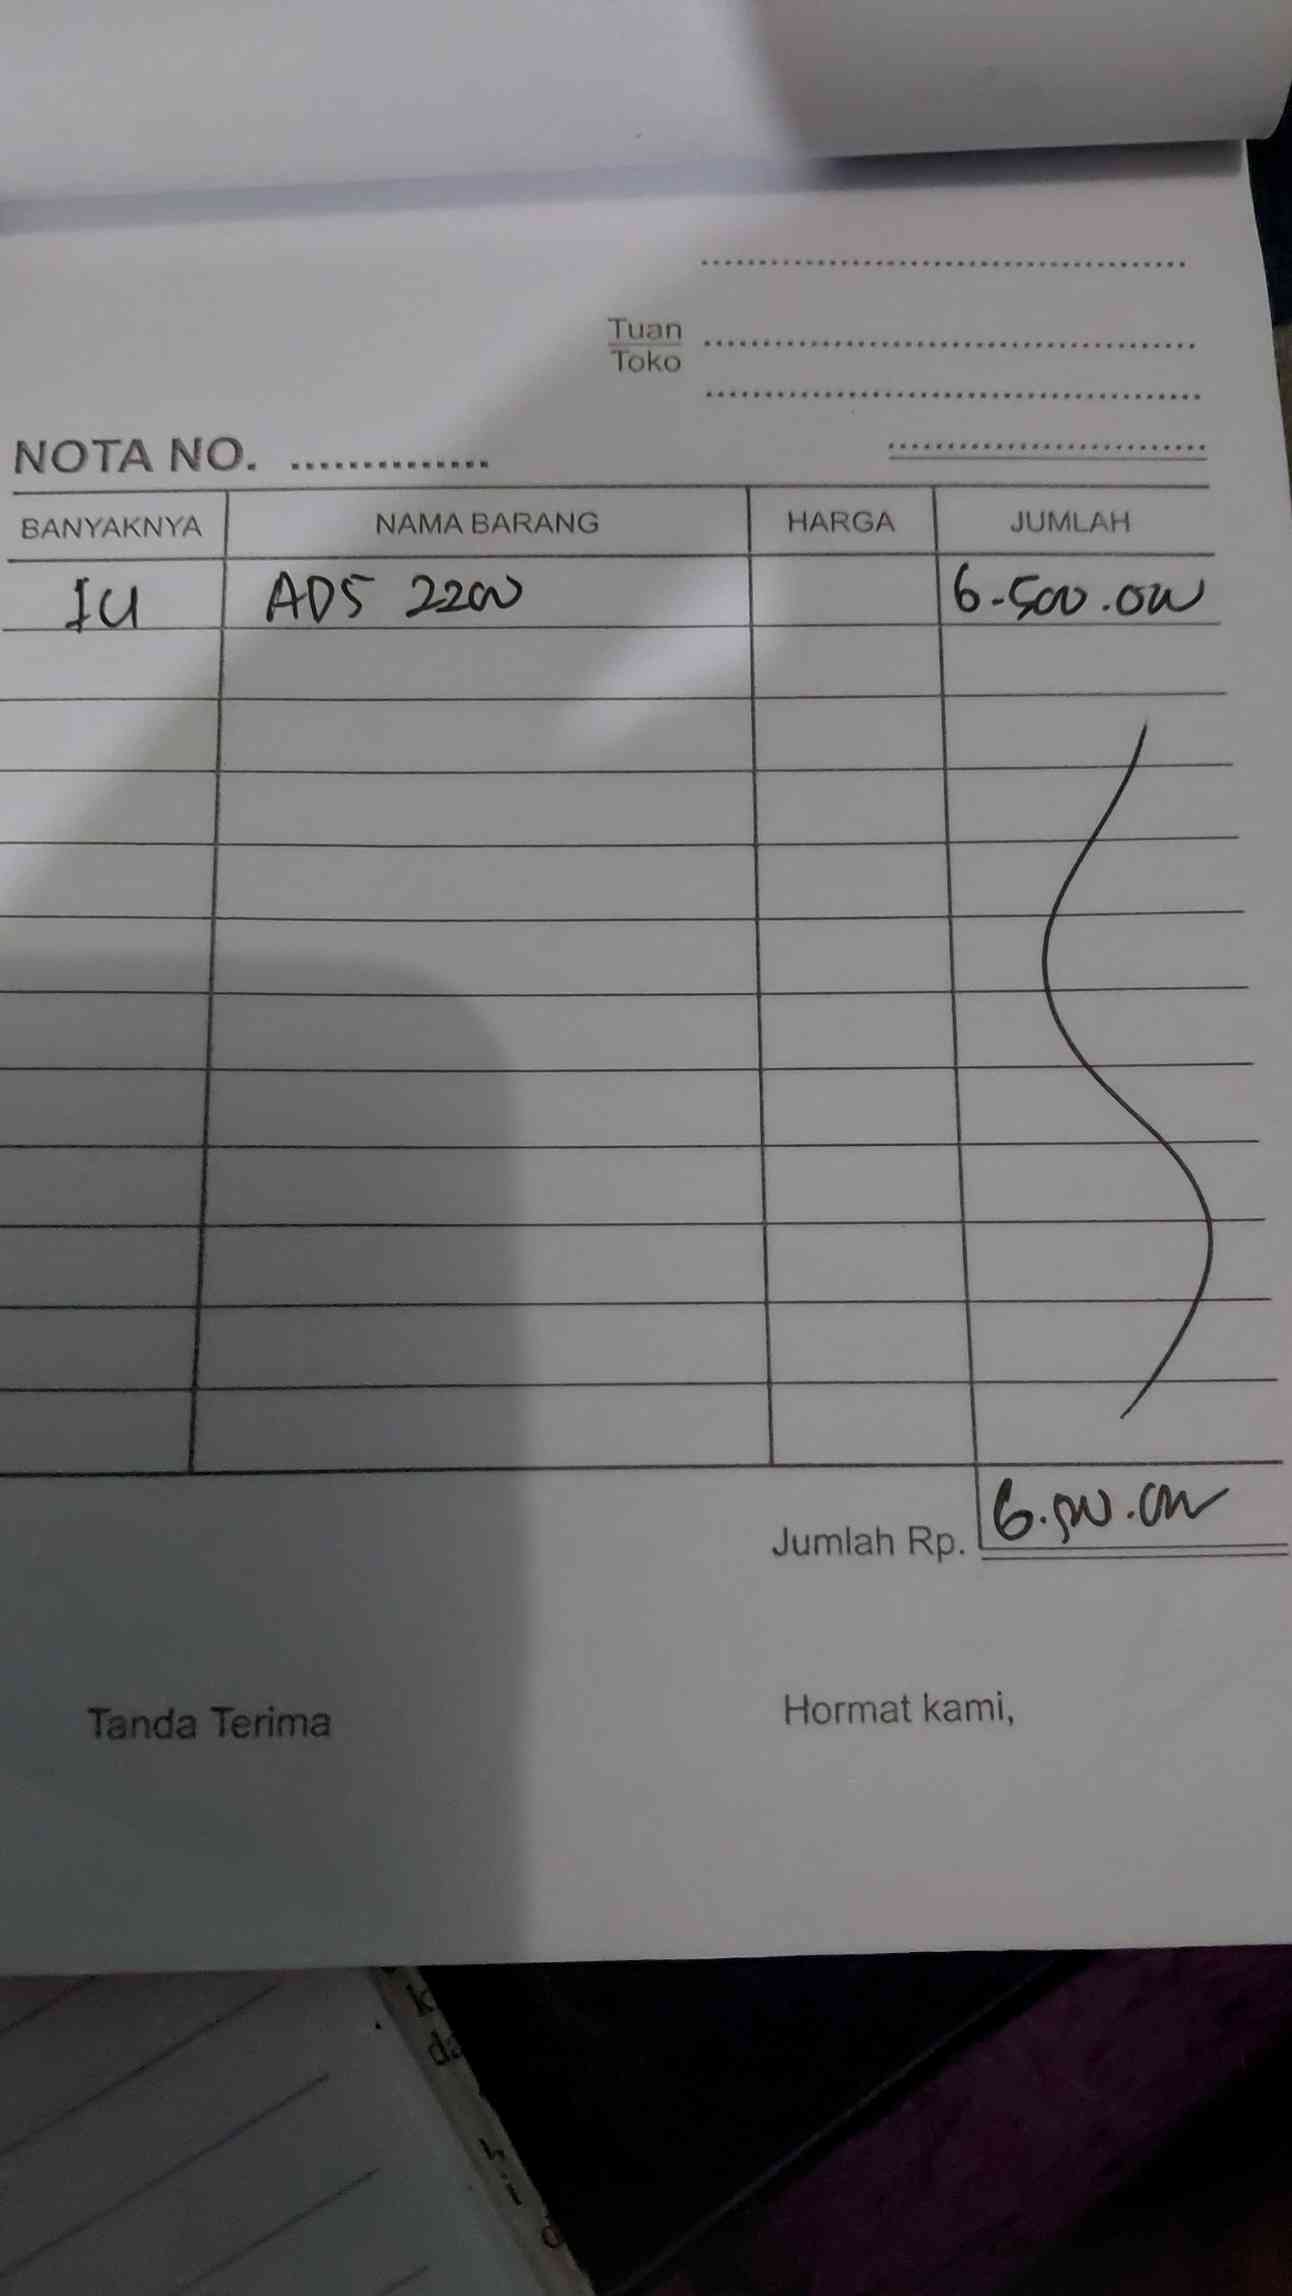 Tuan
Toko
NOTA NO. ..............
BANYAKNYA NAMA BARANG HARGA JUMLAH
1U ADS 2200 6.500.000
Jumlah Rp. 6.500.000
Tanda Terima Hormat kami,
k
da
h
i